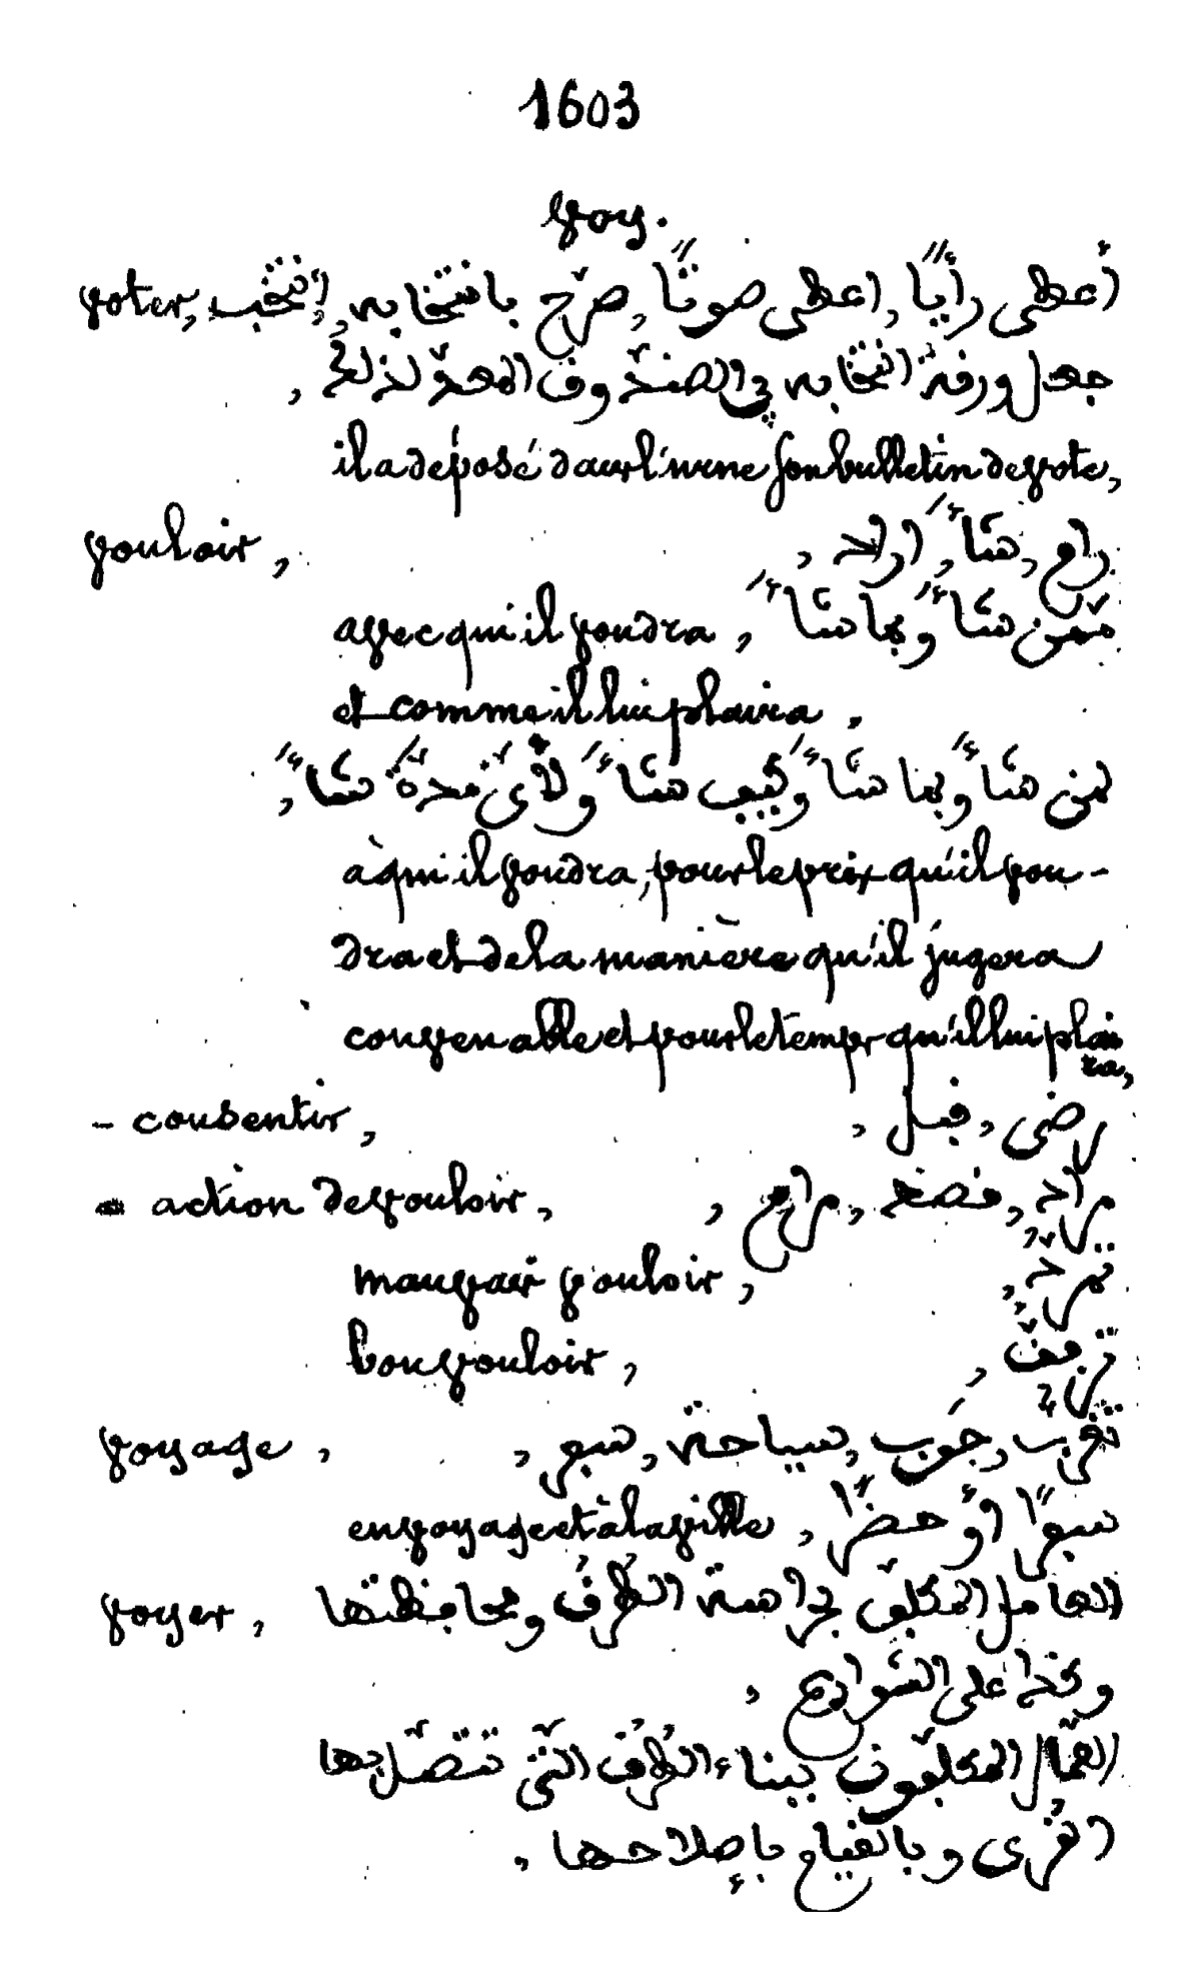 1603
Voy.
voter, أَعطى رأيًا, اعطى صوتًا, صرّح بانتخابه, إنتخب
جعل ورقة انتخابه في الصندوق المعدّ لذلك,
il a déposé dans l'urne son bulletin de vote,
vouloir, رام, شاء, اراد,
avec qui il voudra, ممّن شاء وبما شاء
et comme il lui plaira.
لمن شاء وبما شاء وكيف شاء ولأيّ مدّة شاء,
à qui il voudra, pour le prix qu'il vou-
dra et de la manière qu'il jugera
convenable et pour le temps qu'il lui plai
ra,
- consentir, رضى, قبل,
- action de vouloir, مراد, قصد, مرام,
mauvais vouloir, تمرّد,
bon vouloir, ترفّق,
voyage, تغرّب, جَوب, سياحة, سفر,
en voyage et à la ville, سفرًا أو حضرًا
voyer, العامل المكلّف بحراسة الطُرُق ومحافظتها
وكذا على الشوارع,
العمّال المكلّفون ببناء الطُرُق التّي تتّصل بها
القُرى وبالقيام بإصلاحها.